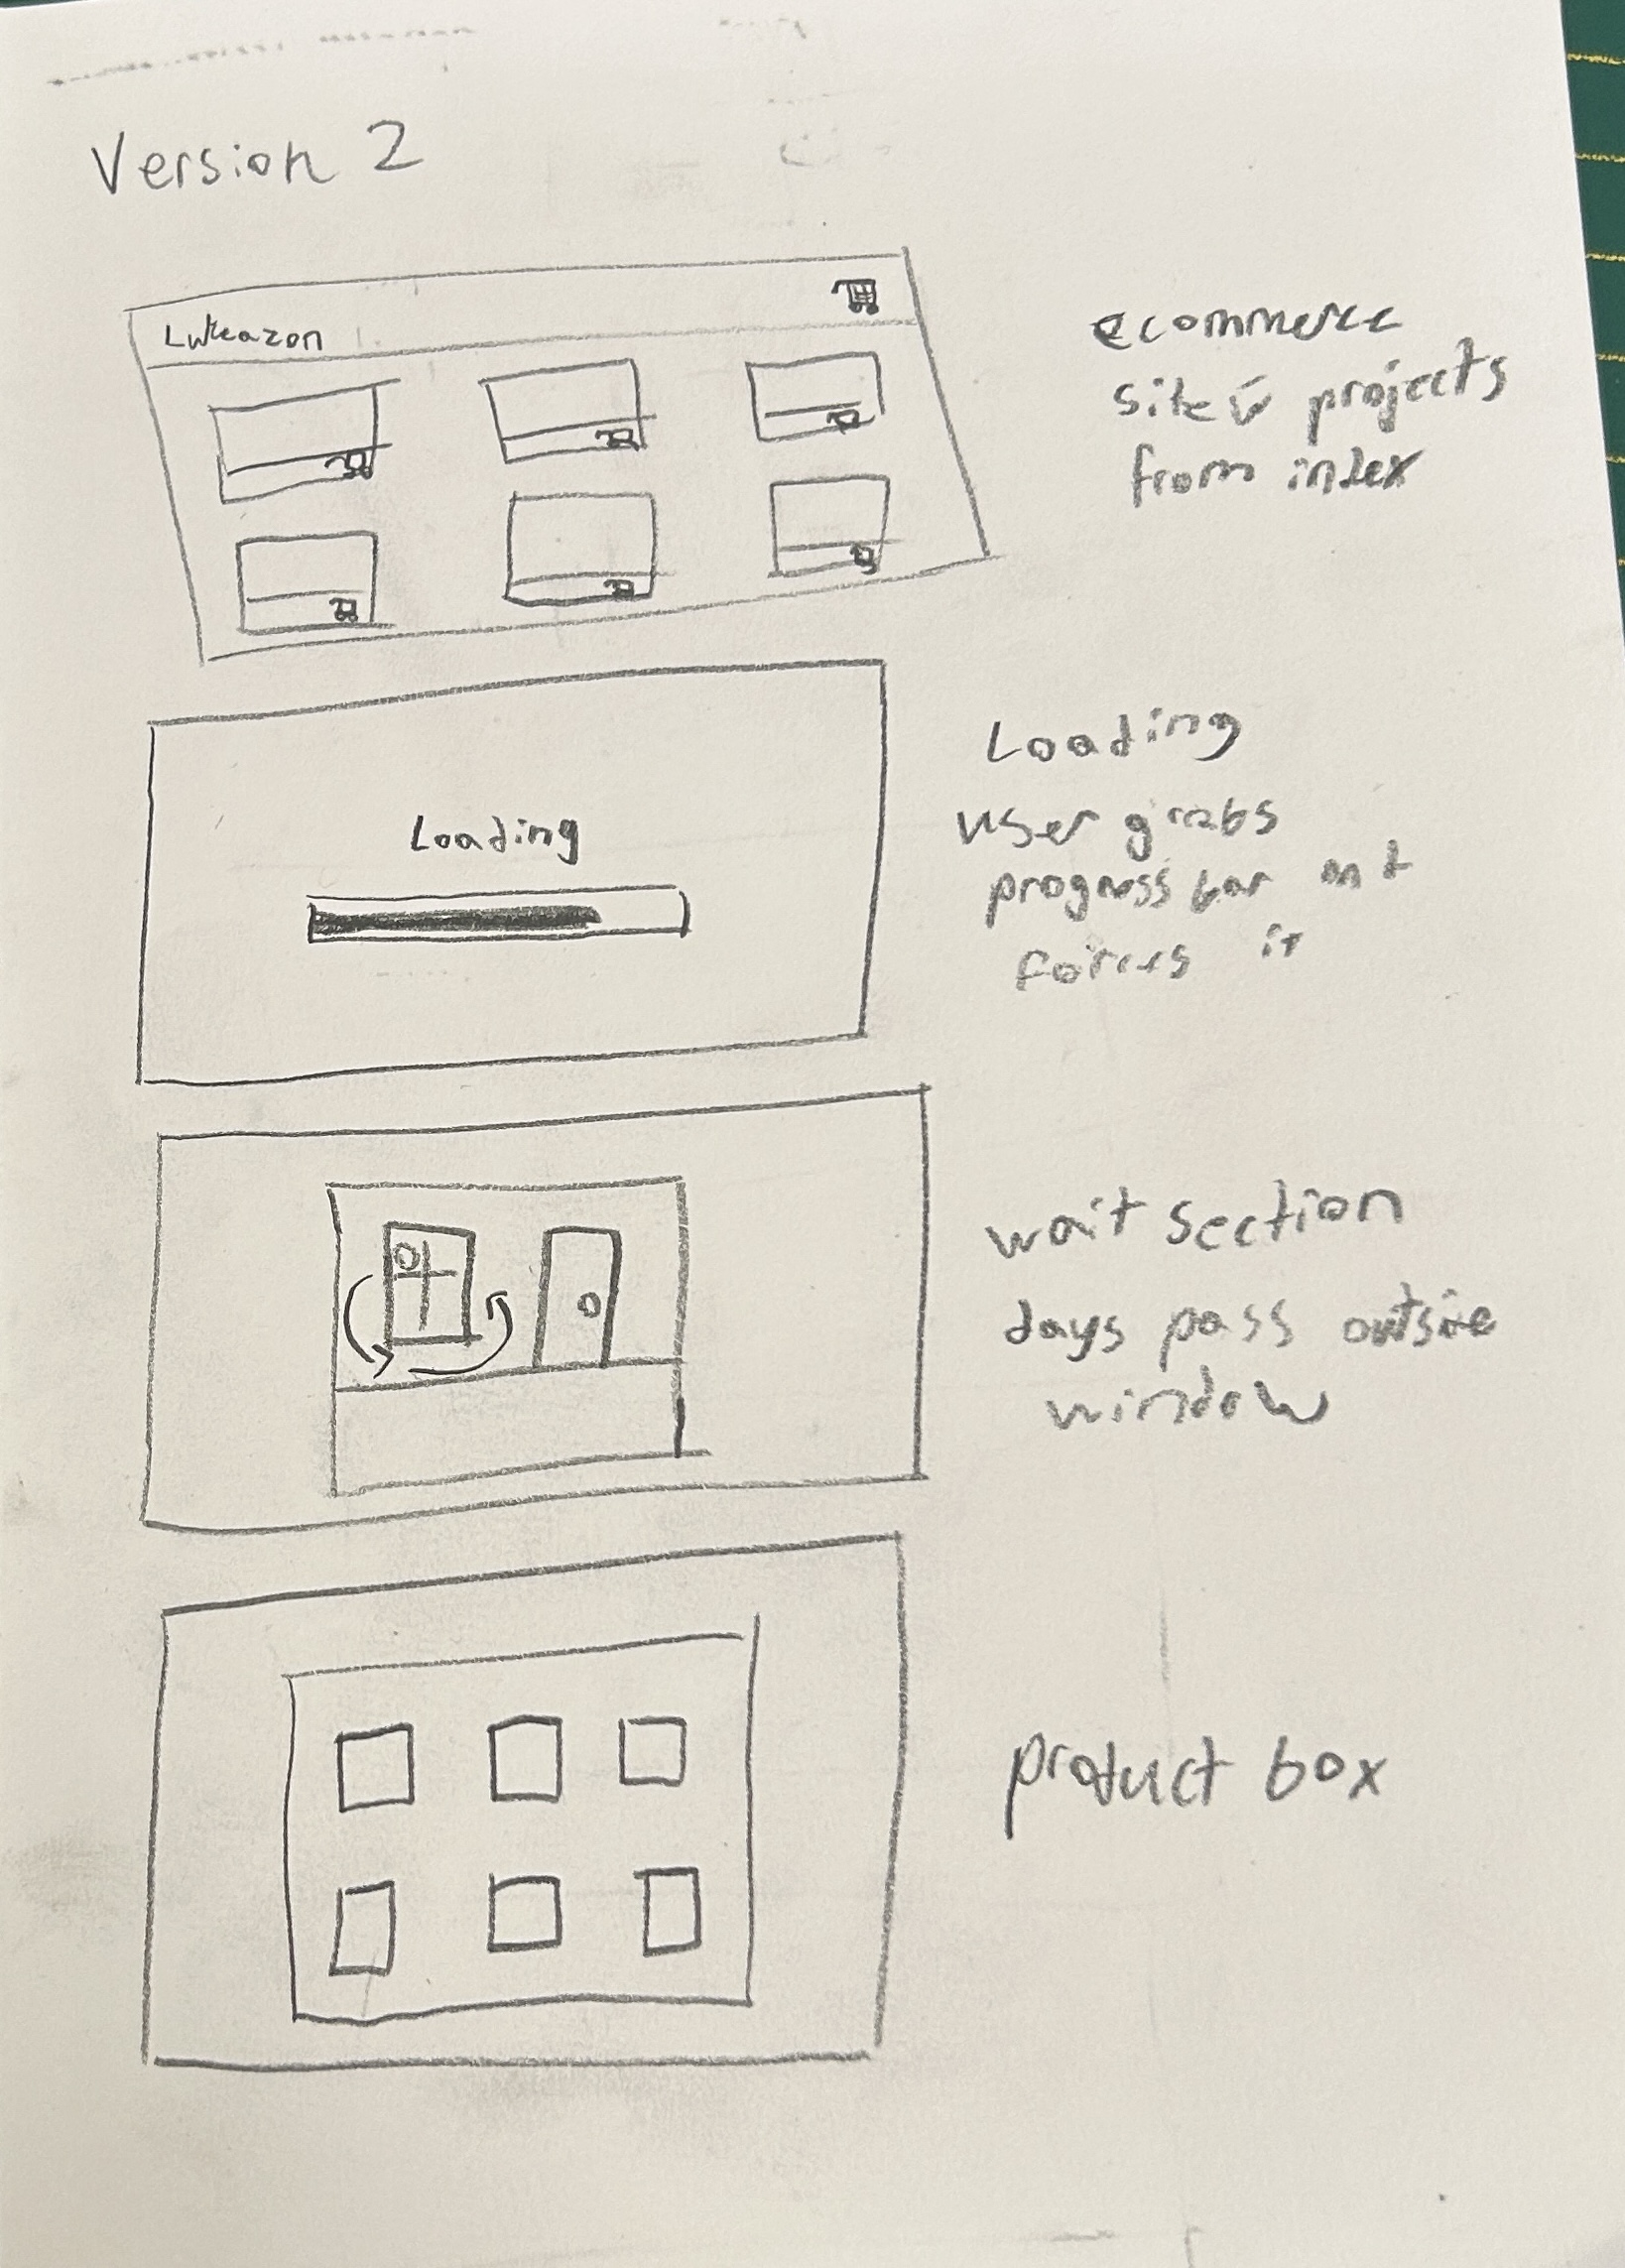 Version 2
Lukeazon
ecommerce
site w projects
from index
Loading
Loading
user grabs
progress bar and
forces it
wait section
days pass outside
window
product box